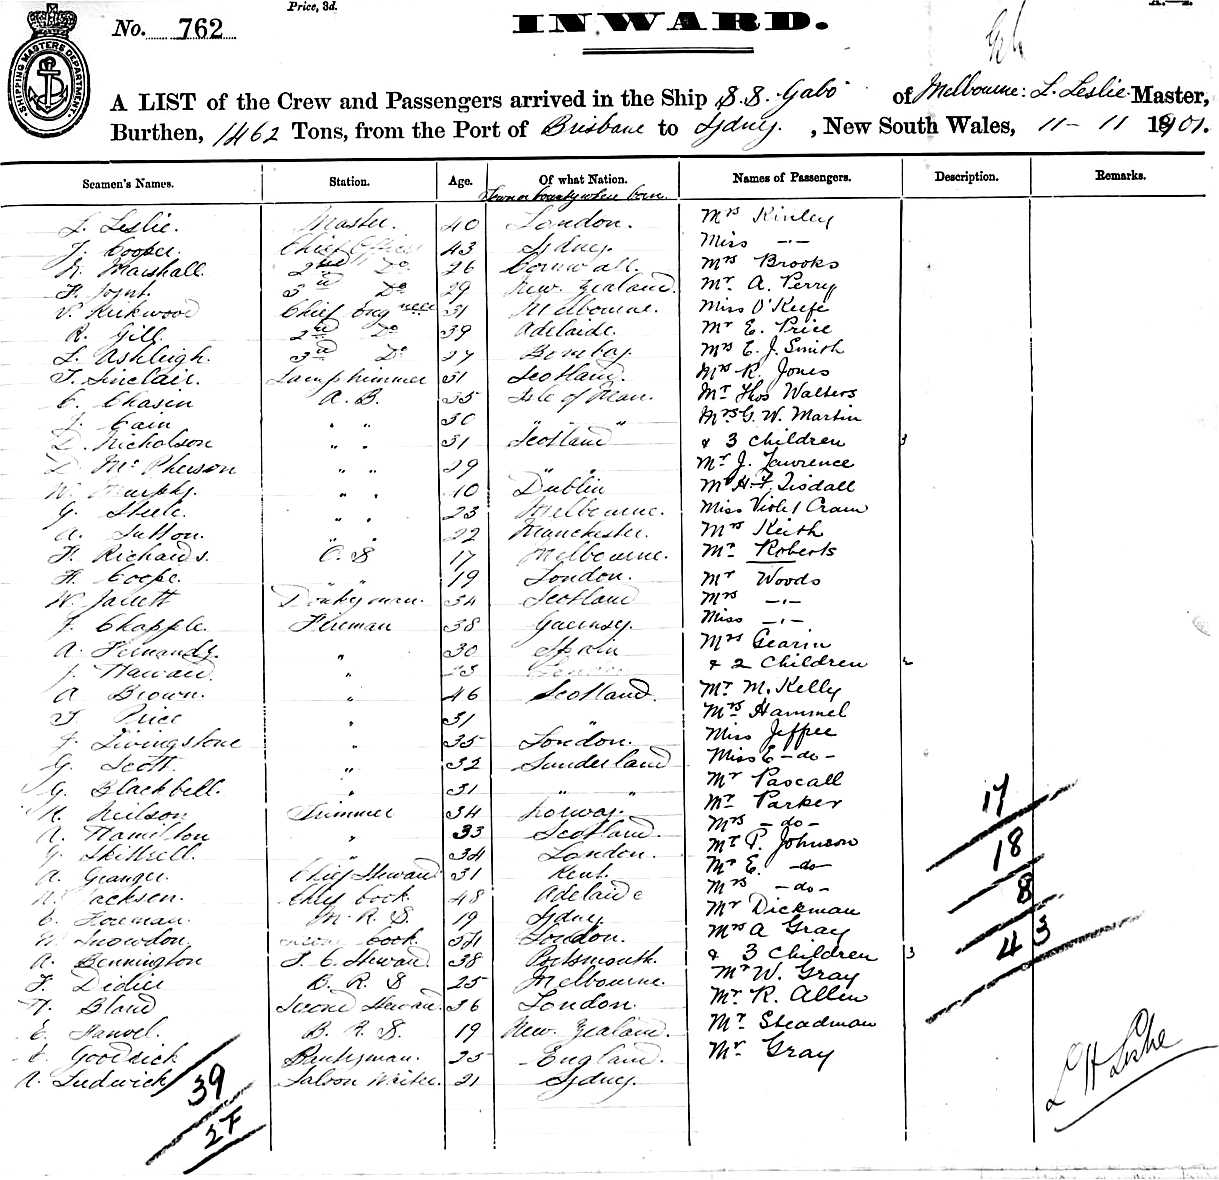 Price, 3d.
No. 762
INWARD.
SHIPPING MASTERS DEPARTMENT
A LIST of the Crew and Passengers arrived in the Ship S.S. Gabo of Melbourne: L. Leslie Master,
Burthen, 1462 Tons, from the Port of Brisbane to Sydney, New South Wales, 11-11 1901.
Seamen's Names. Station. Age. Of what Nation. Names of Passengers. Description. Remarks.
Town or County where born.
L. Leslie. Master. 40 London. Mrs Kinley
J. Cooper. Chief Officer 43 Sydney. Miss -"-
N. Marshall. 2nd Do 26 Cornwall. Mrs Brooks
H. Joynt. 3rd Do 29 New Zealand. Mr A. Perry
V. Kirkwood Chief Engineer 31 Melbourne. Miss O'Keefe
R. Gill. 2nd Do 39 Adelaide. Mr E. Price
L. Ashleigh. 3rd Do 27 Bombay. Mrs E. J. Smith
T. Sinclair. Lamptrimmer 31 Scotland. Mrs R. Jones
C. Chasen A. B. 35 Isle of Man. Mr Thos Walters
J. Cain " " 30 " " " Mrs G. W. Martin
D. Nicholson " " 31 Scotland & 3 Children 3
D. McPherson " " 29 " " Mr J. Lawrence
W. Murphy. " " 10 Dublin Mr H. F. Tisdall
G. Steele. " " 23 Melbourne. Miss Violet Cram
A. Sutton. " " 22 Manchester. Mrs Keith
H. Richards. O. S 17 Melbourne. Mr Roberts
H. Coope. " " 19 London. Mr Woods
W. Jarrett Donkeyman. 34 Scotland Mrs -"-
J. Chapple. Fireman 38 Guernsey. Miss -"-
A. Fernandy. " 30 Spain Mrs Gearin
J. Haward. " 23 London & 2 Children 2
A Brown. " 46 Scotland. Mr M. Kelly
T Price " 31 " Mrs Hammel
J. Livingstone " 35 London. Miss Jeffree
G. Scott. " 32 Sunderland Miss E -do-
G. Blackbell. " 31 " " Mr Pascall
N. Neilson Trimmer 34 Norway. Mr Parker
A. Hamilton " 33 Scotland. Mrs -do-
G. Skittrell. " 34 London. Mr P. Johnson
A. Granger Chief Steward 31 Kent. Mr E. -do-
N. Jackson. Chf Cook 48 Adelaide Mrs -do-
C. M. R. S. 19 Sydney Mr Dickman
W. Snowdon. Cook. London. Mrs A Gray
A. Bennington F. C. Steward. 38 Portsmouth. & 3 Children 3
F. Didier B. R. S 25 Melbourne. Mr W. Gray
H. Bland Second Steward. 36 London Mr R. Allen
E. B. R. S. 19 New Zealand. Mr Steadman
Goodrick Pantryman. 25 England. Mr Gray
A. Ludwick Saloon Waiter. 21 Sydney.
17
18
8
43
39
27
L H Leslie